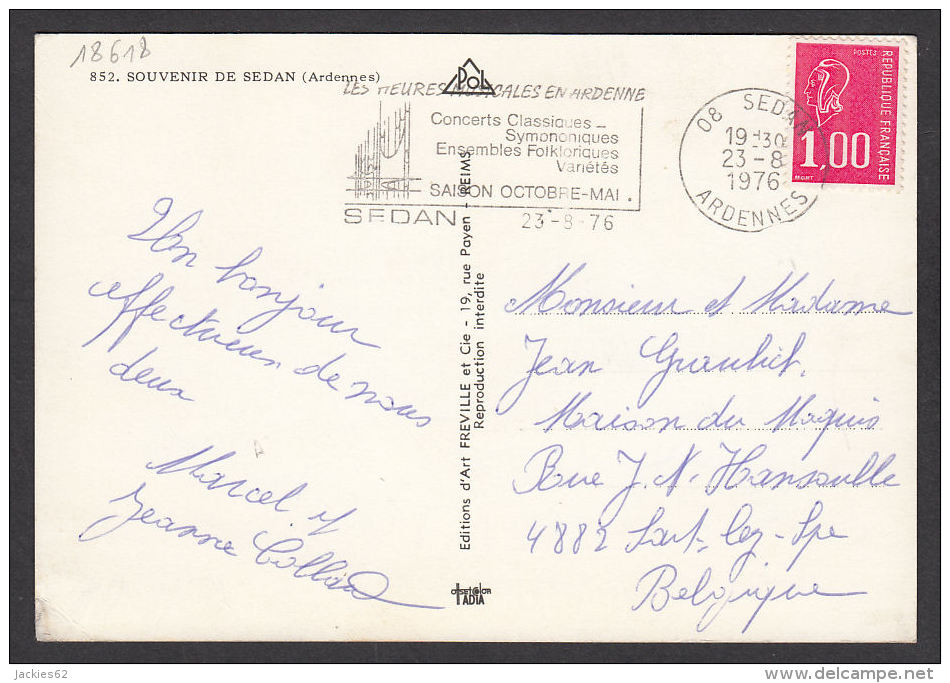 18618
852. SOUVENIR DE SEDAN (Ardennes)
Pol
LES HEURES MUSICALES EN ARDENNE
Concerts Classiques -
Symphoniques
Ensembles Folkloriques
Variétés
SAISON OCTOBRE-MAI.
SEDAN
23-8-76
08 SEDAN
19H30
23-8
1976
ARDENNES
POSTES
REPUBLIQUE FRANÇAISE
1,00
Un bonjour
affectueux de nous
deux
Marcel et
Jeanne
Editions d'Art FREVILLE et Cie - 19, rue Payen - REIMS
Reproduction interdite
Monsieur et Madame
Jean
Maison du Maquis
Rue J. N. Hansoulle
4882 Sart-lez-Spa
Belgique
IADIA
Jackies62
www.delcampe.net